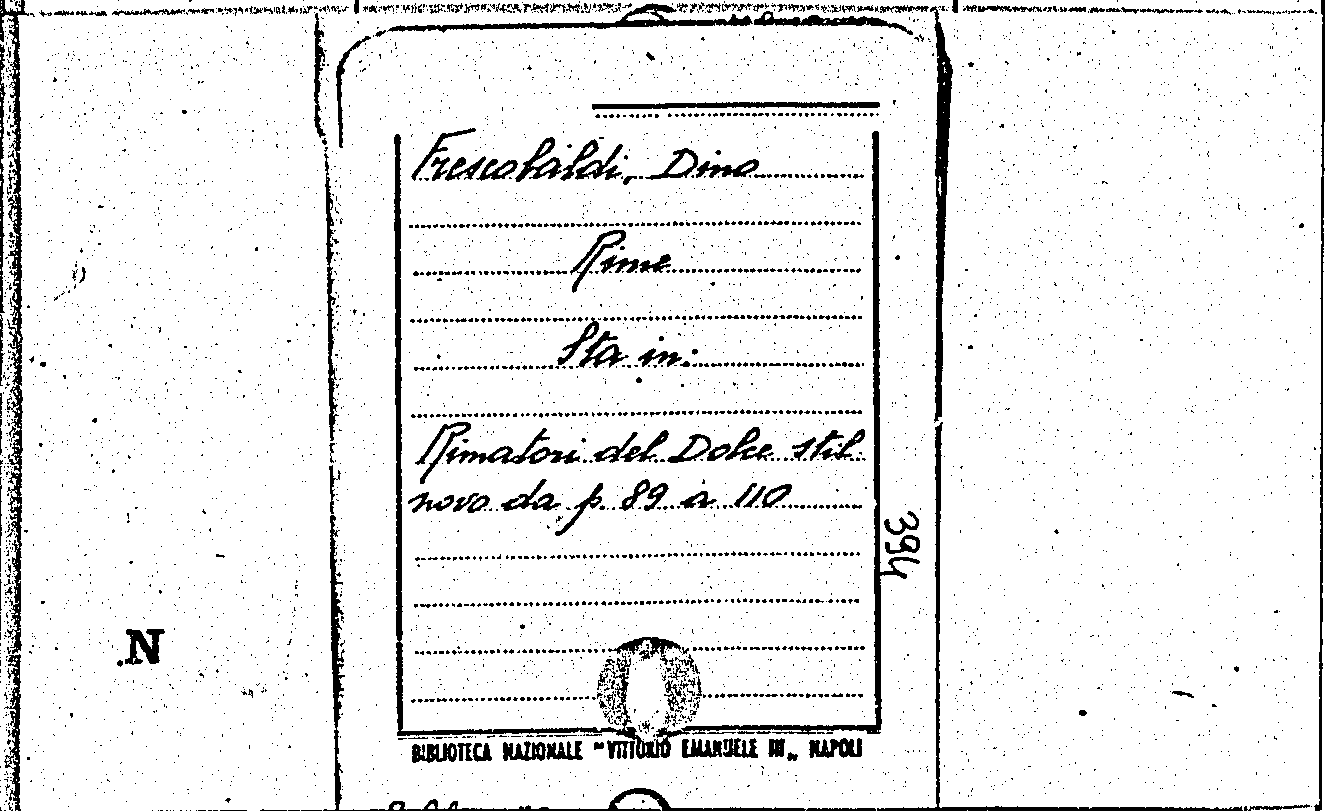 Frescobaldi, Dino
Rime
Sta in:
Rimatori del Dolce stil
novo da p. 89 a 110
394
N
BIBLIOTECA NAZIONALE "VITTORIO EMANUELE III„ NAPOLI